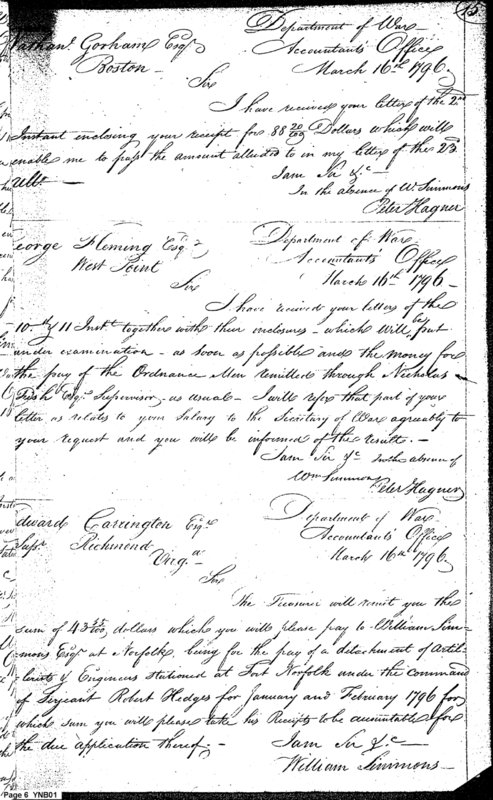 15
Department of War
Nathanl Gorham Esqr Accountants Office
Boston March 16th 1796
Sir
I have received your letter of the 2nd
Instant enclosing your receipt for 88 20/100 Dollars which will
enable me to pass the amount alluded to in my letter of the 23d
Ulto
I am Sir &c
In the absence of Wm Simmons
Peter Hagner
George Fleming Esqr Department of War
West Point Accountants Office
Sir March 16th 1796
I have received your letters of the
10th & 11 Instt together with their enclosures which will be put
under examination as soon as possible and the money for
the pay of the Ordnance Men remitted through Nicholas
Fish Esqr Supervisor as usual I will refer that part of your
letter as relates to your Salary to the Secretary of War agreeably to
your request and you will be informed of the result.
I am Sir &c In the absence of
Wm Simmons
Peter Hagner
Edward Carrington Esqr Department of War
Supr Richmond Accountants Office
Virga March 16th 1796
Sir
The Treasurer will remit you the
sum of 43 /100 dollars which you will please pay to William Sim-
mons Esqr at Norfolk, being for the pay of a detachment of Artil-
lerists & Engineers stationed at Fort Norfolk under the command
of Serjeant Robert Hedges for January and February 1796 for
which sum you will please take his Receipts to be accountable for
the due application thereof.
I am Sir &c
William Simmons
Page 6 YNB01